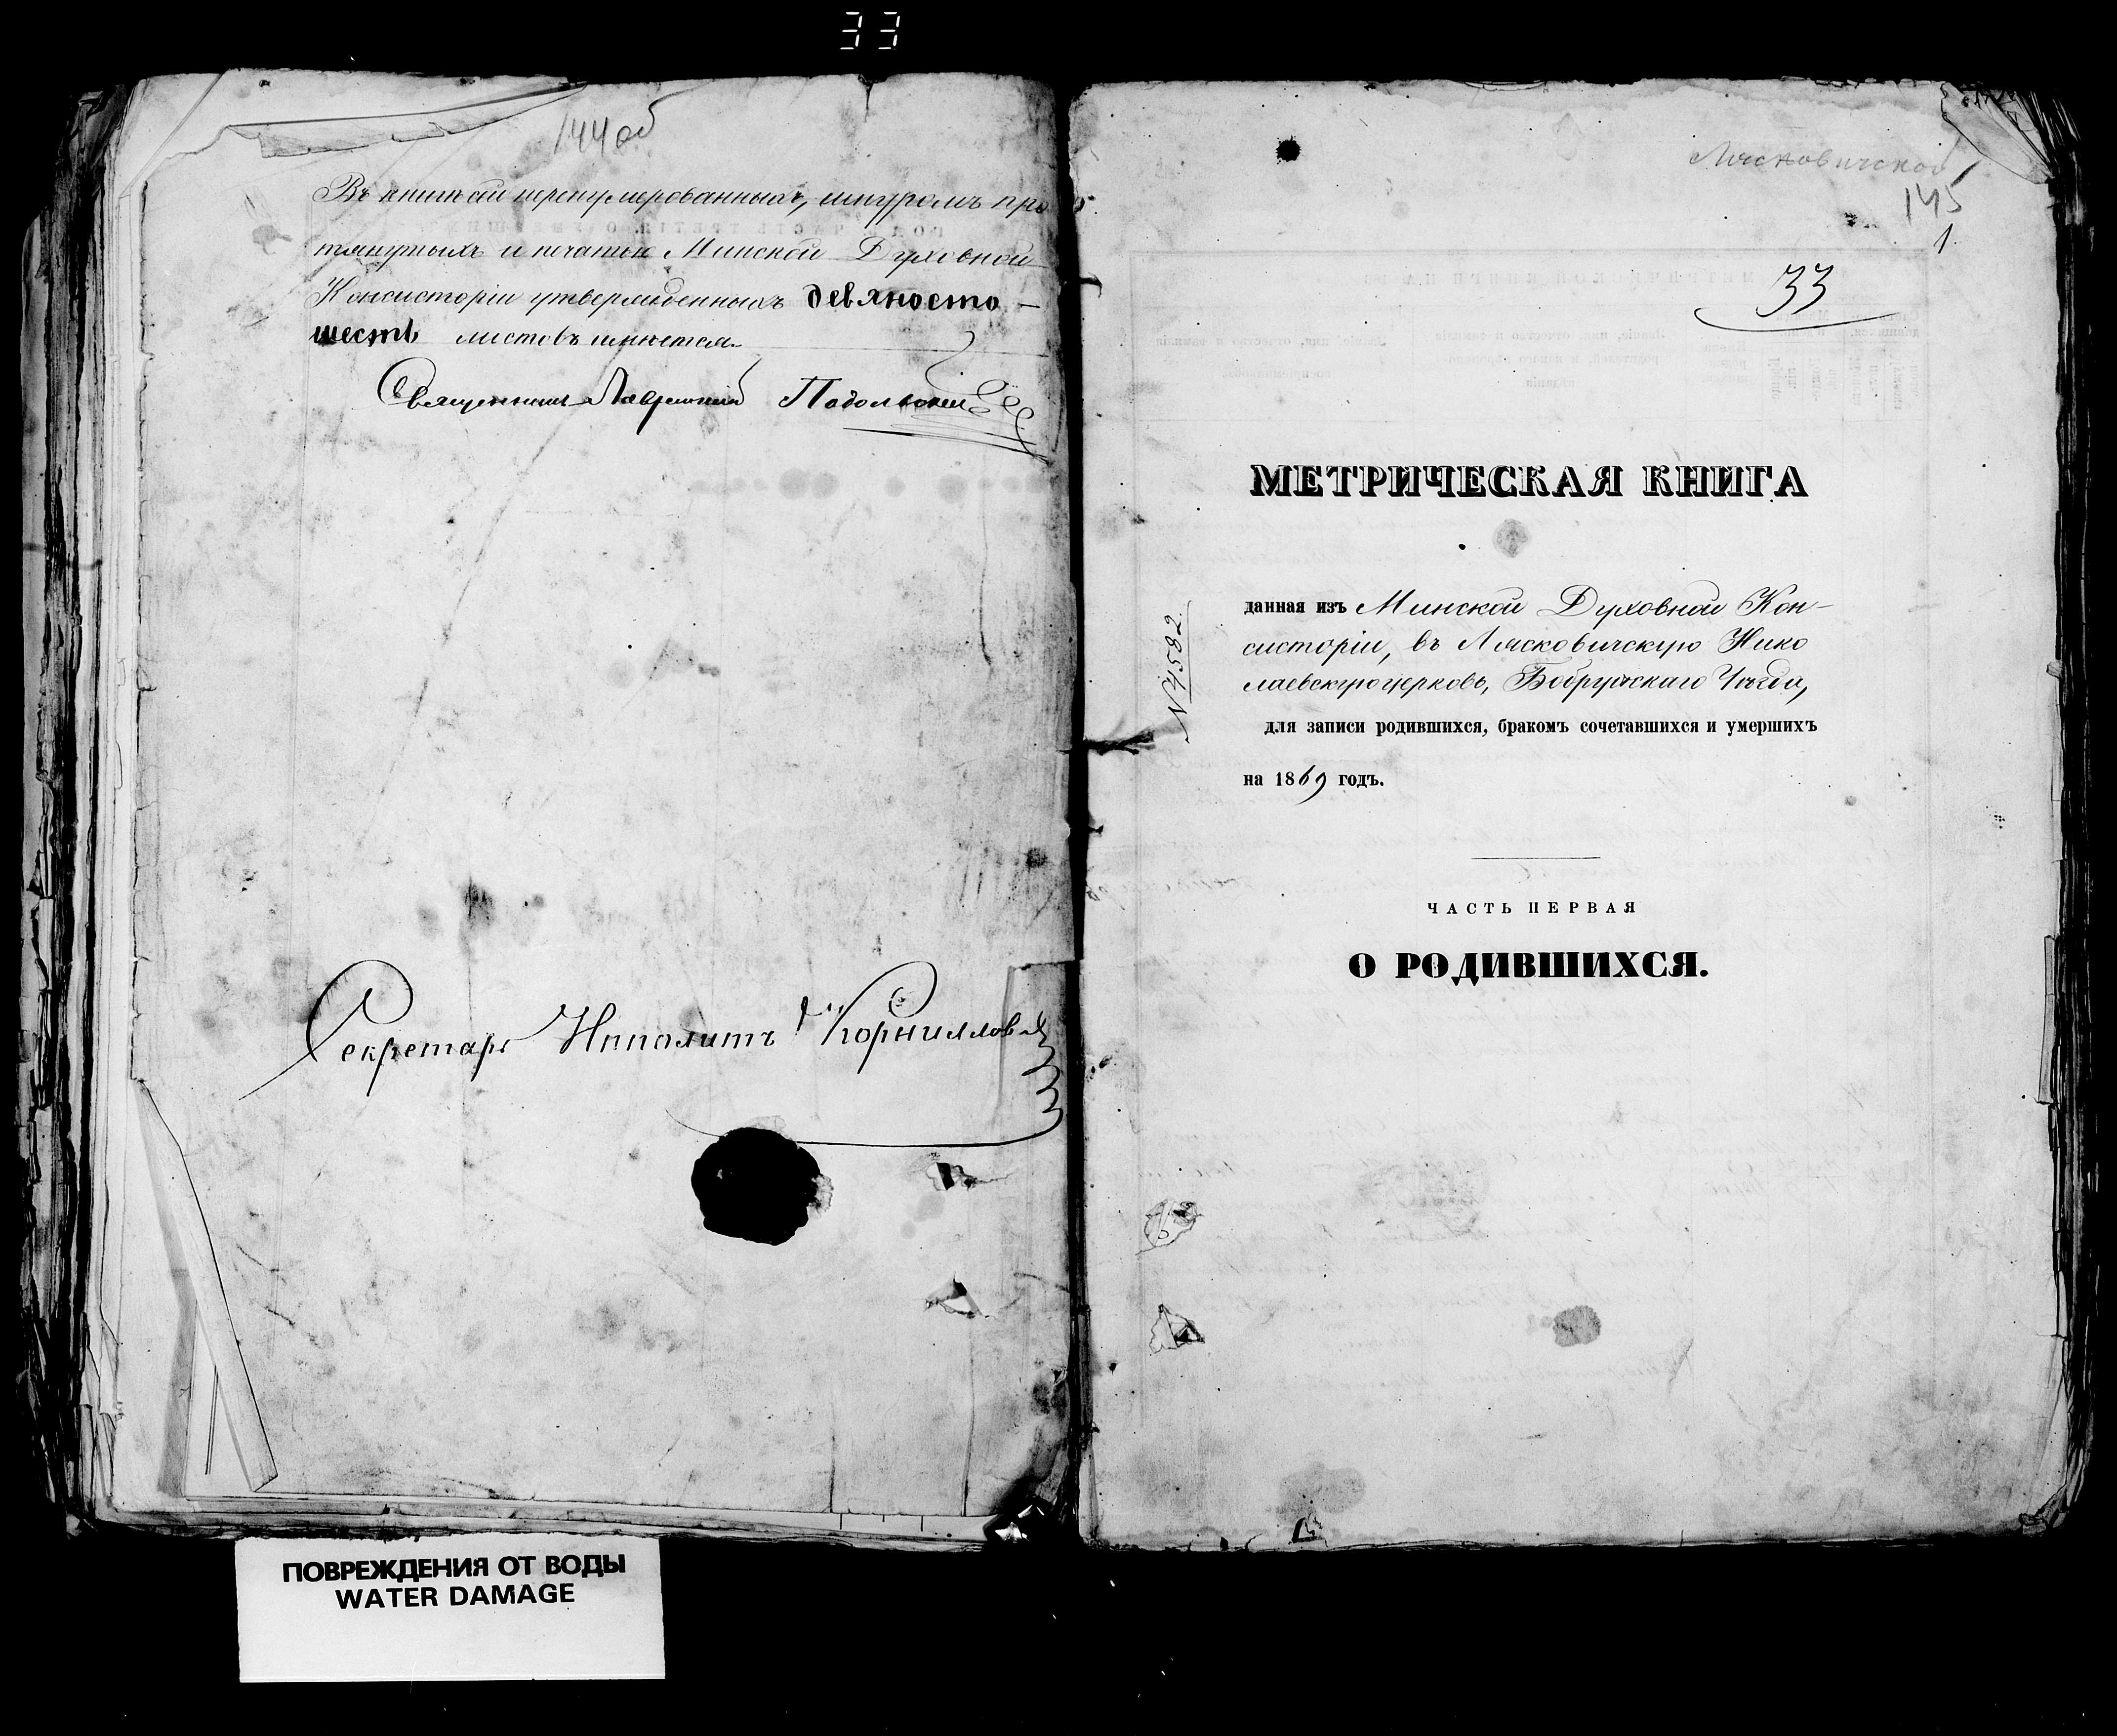 33
144об
Въ книгѣ сей перенумерованныхъ, шнуромъ про
тянутыхъ и печатью Минской Духовной
Консисторіи утвержденныхъ девяносто –
шесть листовъ имѣется.
Священникъ Лаврентій Подольскій
Секретарь Ипполитъ Корниллов
Лясковичской
145
1
33
МЕТРИЧЕСКАЯ КНИГА
№ 4582.
данная изъ Минской Духовной Кон–
систоріи, въ Лясковичскую Нико
лаевскую церковь, Бобруйскаго Уѣзда,
для записи родившихся, бракомъ сочетавшихся и умершихъ
на 1869 годъ.
ЧАСТЬ ПЕРВАЯ
О РОДИВШИХСЯ.
ПОВРЕЖДЕНИЯ ОТ ВОДЫ
WATER DAMAGE